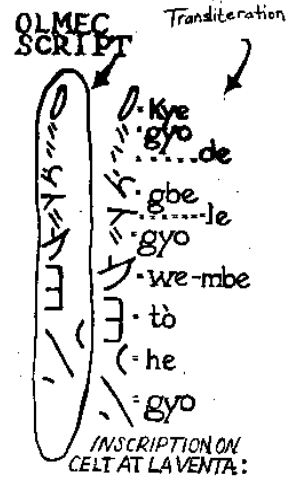 OLMEC
SCRIPT
Transliteration
Kye
gyo
de
gbe
le
gyo
we-mbe
tò
he
gyo
INSCRIPTION ON
CELT AT LA VENTA: